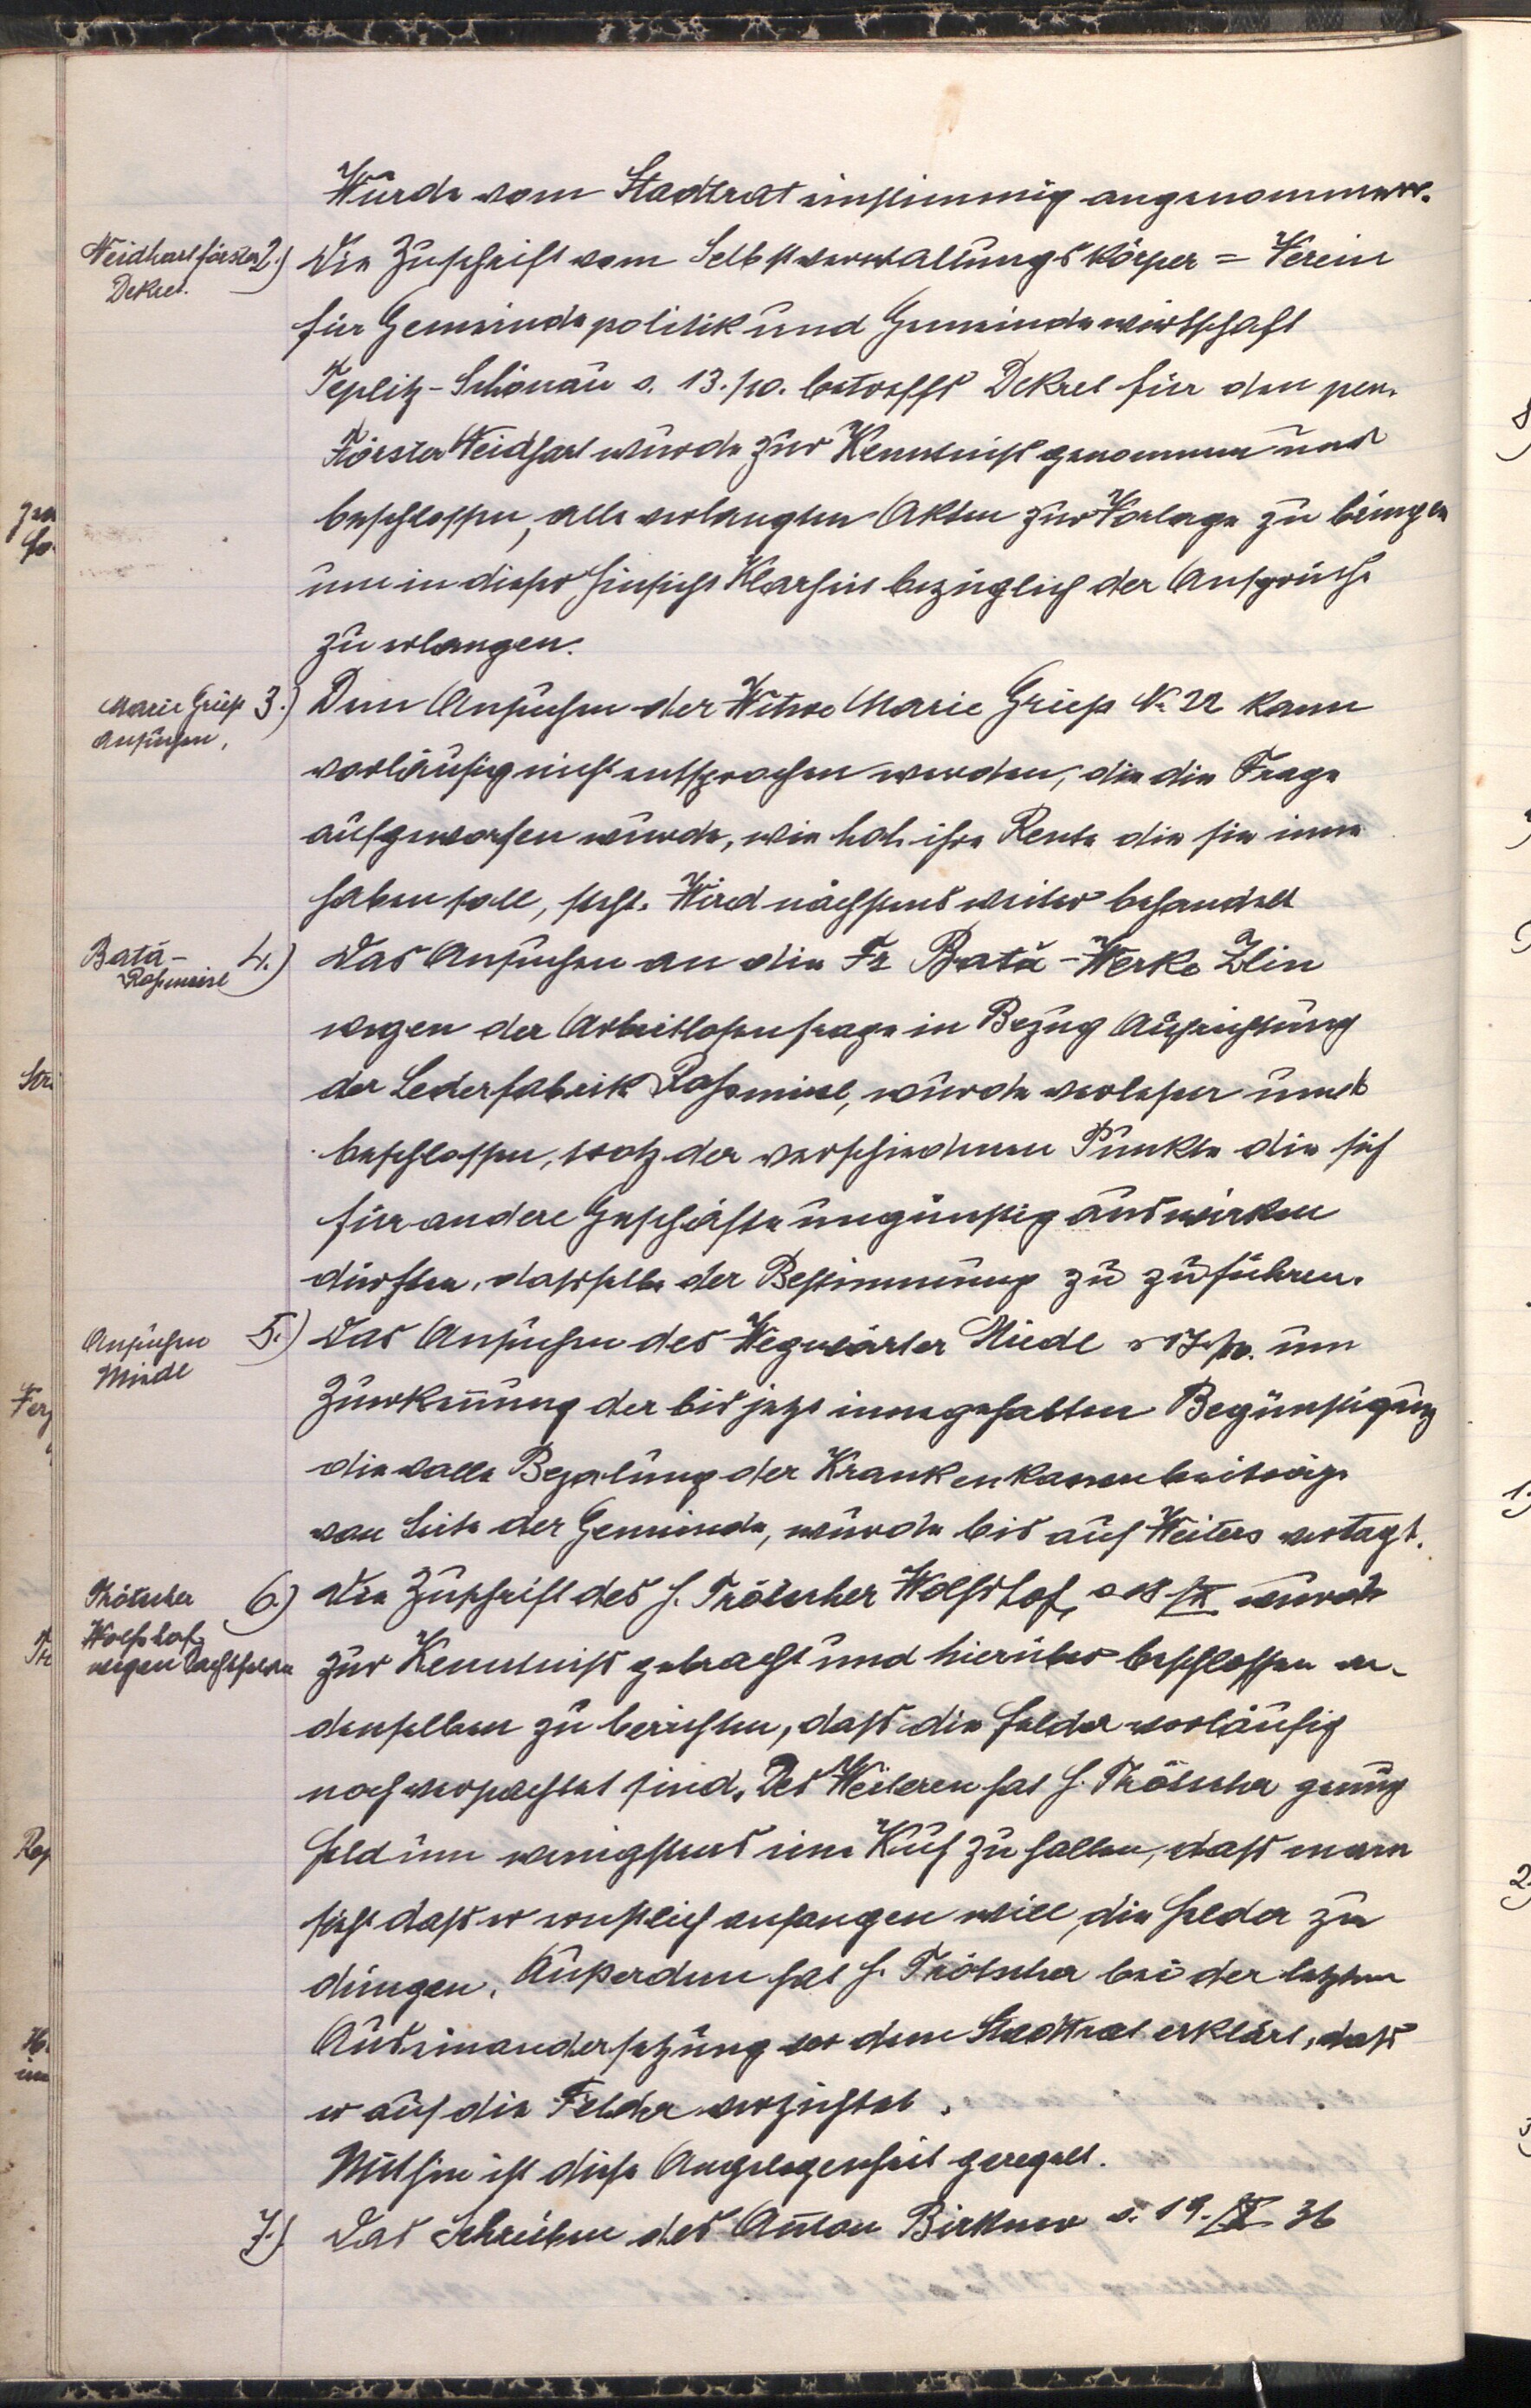 Wurde vom Stadtrat einstimmig angenommen.
Neidhart förster
Dekret.
2.) Die Zuschrift vom Selbstverwaltungskörper = Verein
für Gemeindepolitik und Gemeindewirtschaft
Teplitz-Schönau v. 13./10. betreffs Dekret für den pen.
Förster Neidhart wurde zur Kenntnis genommen und
beschlossen, alle verlangten Akten zur Vorlage zu bringen
um in dieser Hinsicht Klarheit bezüglich der Ansprüche
zu erlangen.
Marie Griess
Ansuchen,
3.) Dem Ansuchen der Witwe Marie Griess No 22 kann
vorläufig nicht entsprochen werden, die die Frage
aufgeworfen wurde, wie hoh ihre Rente die sie inne
haben soll, steht. Wird nächstens weiter behandelt
Batá-
Rossmeisl
4.) Das Ansuchen an die Fr. Batá-Werke Zlin
wegen der Arbeitlosenfrage in Bezug Aufrichtung
der Lederfabrik Rossmeisl, wurde verlesen und
beschlossen, trotz der verschiedenen Punkte die sich
für andere Geschäfte ungünstig auswirken
dürften, dasselbe der Bestimmung zu zuführen.
Ansuchen
Miedl
5.) Das Ansuchen des Wegwärter Miedl v 17./10. um
Zuerkennung der bis jetzt innegehabten Begünstigung
die volle Bezalung der Krankenkassenbeiträge
von Seite der Gemeinde, wurde bis auf Weiters vertagt.
Trötscher
Wolfshof
wegen Pachtfelder
6.) Die Zuschrift des H. Trötscher Wolfshof, v 18./X wurde
zur Kenntniss gebracht und hierüber beschlossen an
denselben zu berichten, dass die Felder vorläufig
noch verpachtet sind. Des Weiteren hat H. Trötscher genug
Feld um wenigstens eine Kuh zu halten, dass man
sieht dass er ernstlich anfangen will, die Felder zu
düngen. Außerdem hat H. Trötscher bei der letzten
Auseinandersetzung vor dem Stadtrat erklärt, dass
er auf die Felder verzichtet.
Mithin ist diese Angelegenheit geregelt.
7.) Das Schreiben des Anton Birkner v. 19./X 36